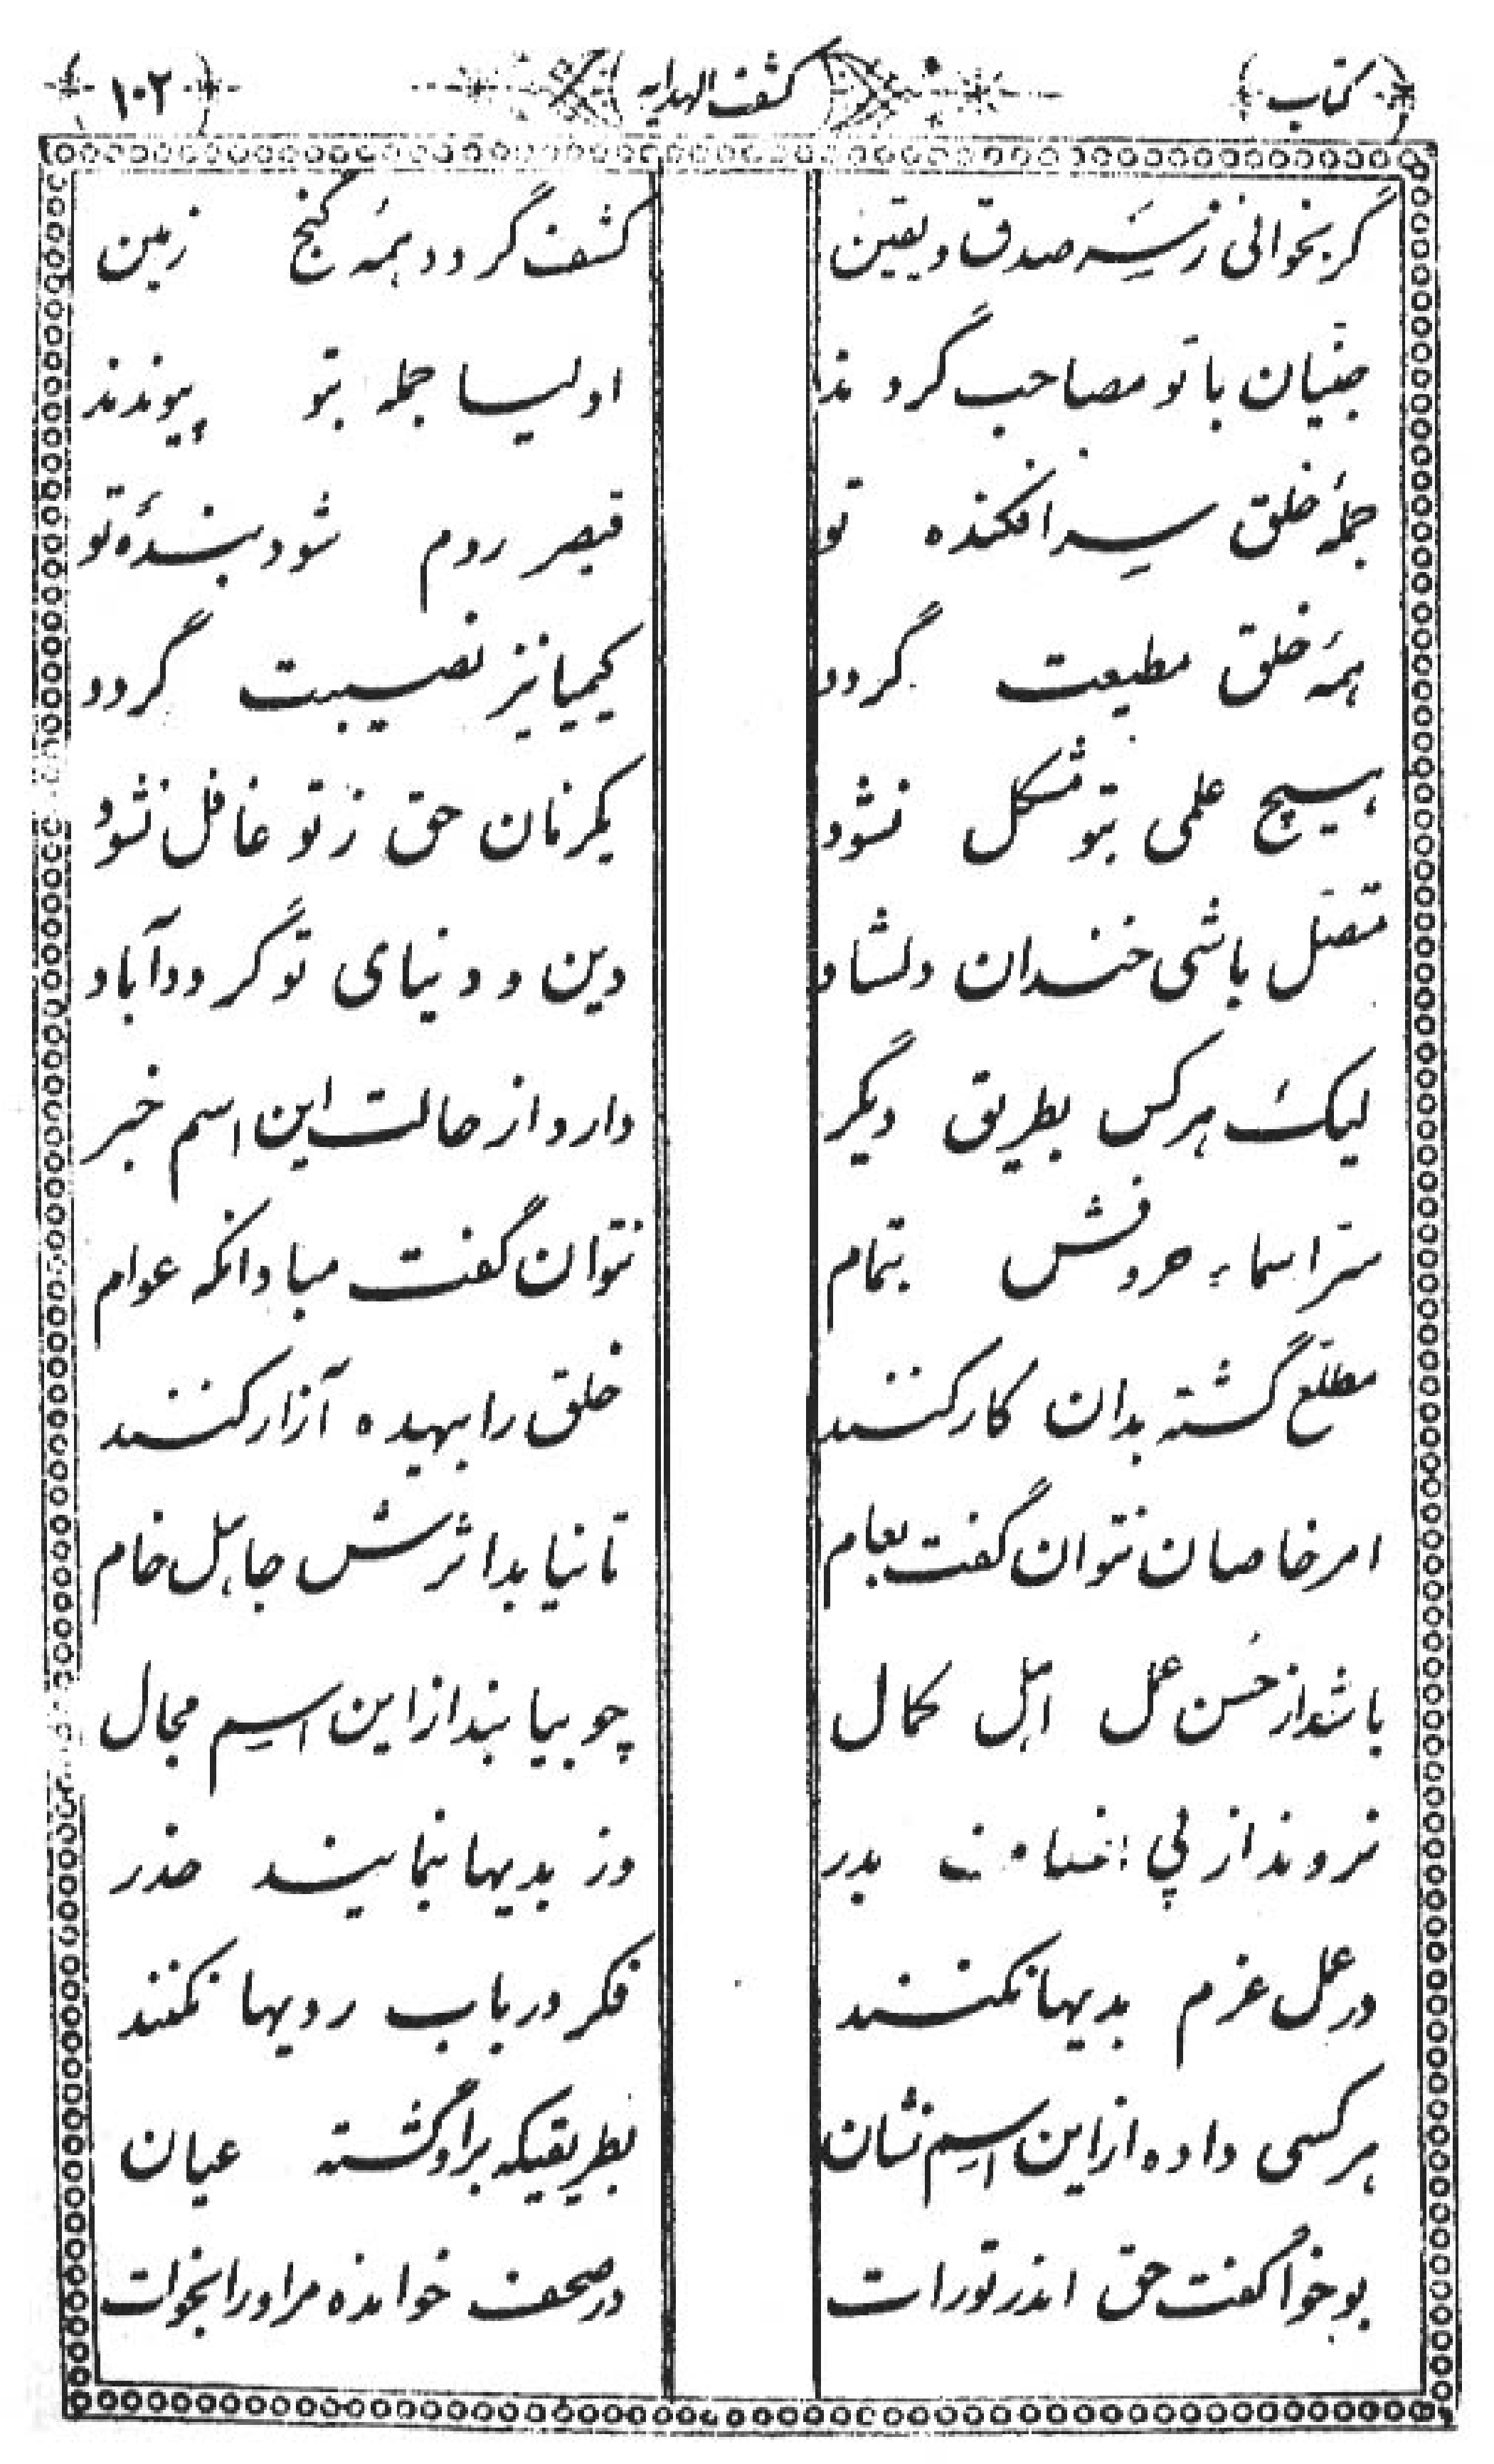 کتاب کشف الهدایه ۱۰۲
گر بخوانی ز سَرِ صدق و یقین کشف گردد همهٔ گنج زمین
جنّیان با تو مصاحب گردند اولیا جمله بتو پیوندند
جملهٔ خلق سرافکندهٔ تو قیصر روم شود بندهٔ تو
همهٔ خلق مطیعت گردد کیمیا نیز نصیبت گردد
هیچ علمی بتو مشکل نشود یکزمان حق ز تو غافل نشود
متصّل باشی خندان دلشاد دین و دنیای تو گردد آباد
لیک هرکس بطریق دیگر دارد از حالت این اسم خبر
سرّ اسماء حروفش بتمام نتوان گفت مبادا که عوام
مطّلع گشته بدان کار کنند خلق را بیهده آزار کنند
امر خاصان نتوان گفت بعام تا نیابد اثرش جاهل خام
باشد از حُسن عمل اهل کمال چو بیابند از این اسم مجال
نروند از پی بدر وز بدیها بنمایند حذر
در عمل عزم بدیها نکنند فکر در باب ردیها نکنند
هر کسی داده از این اسم نشان بطریقیکه براو گشته عیان
بوخوا گفت حق اندر تورات در صحف خوانده مر او را بخوات